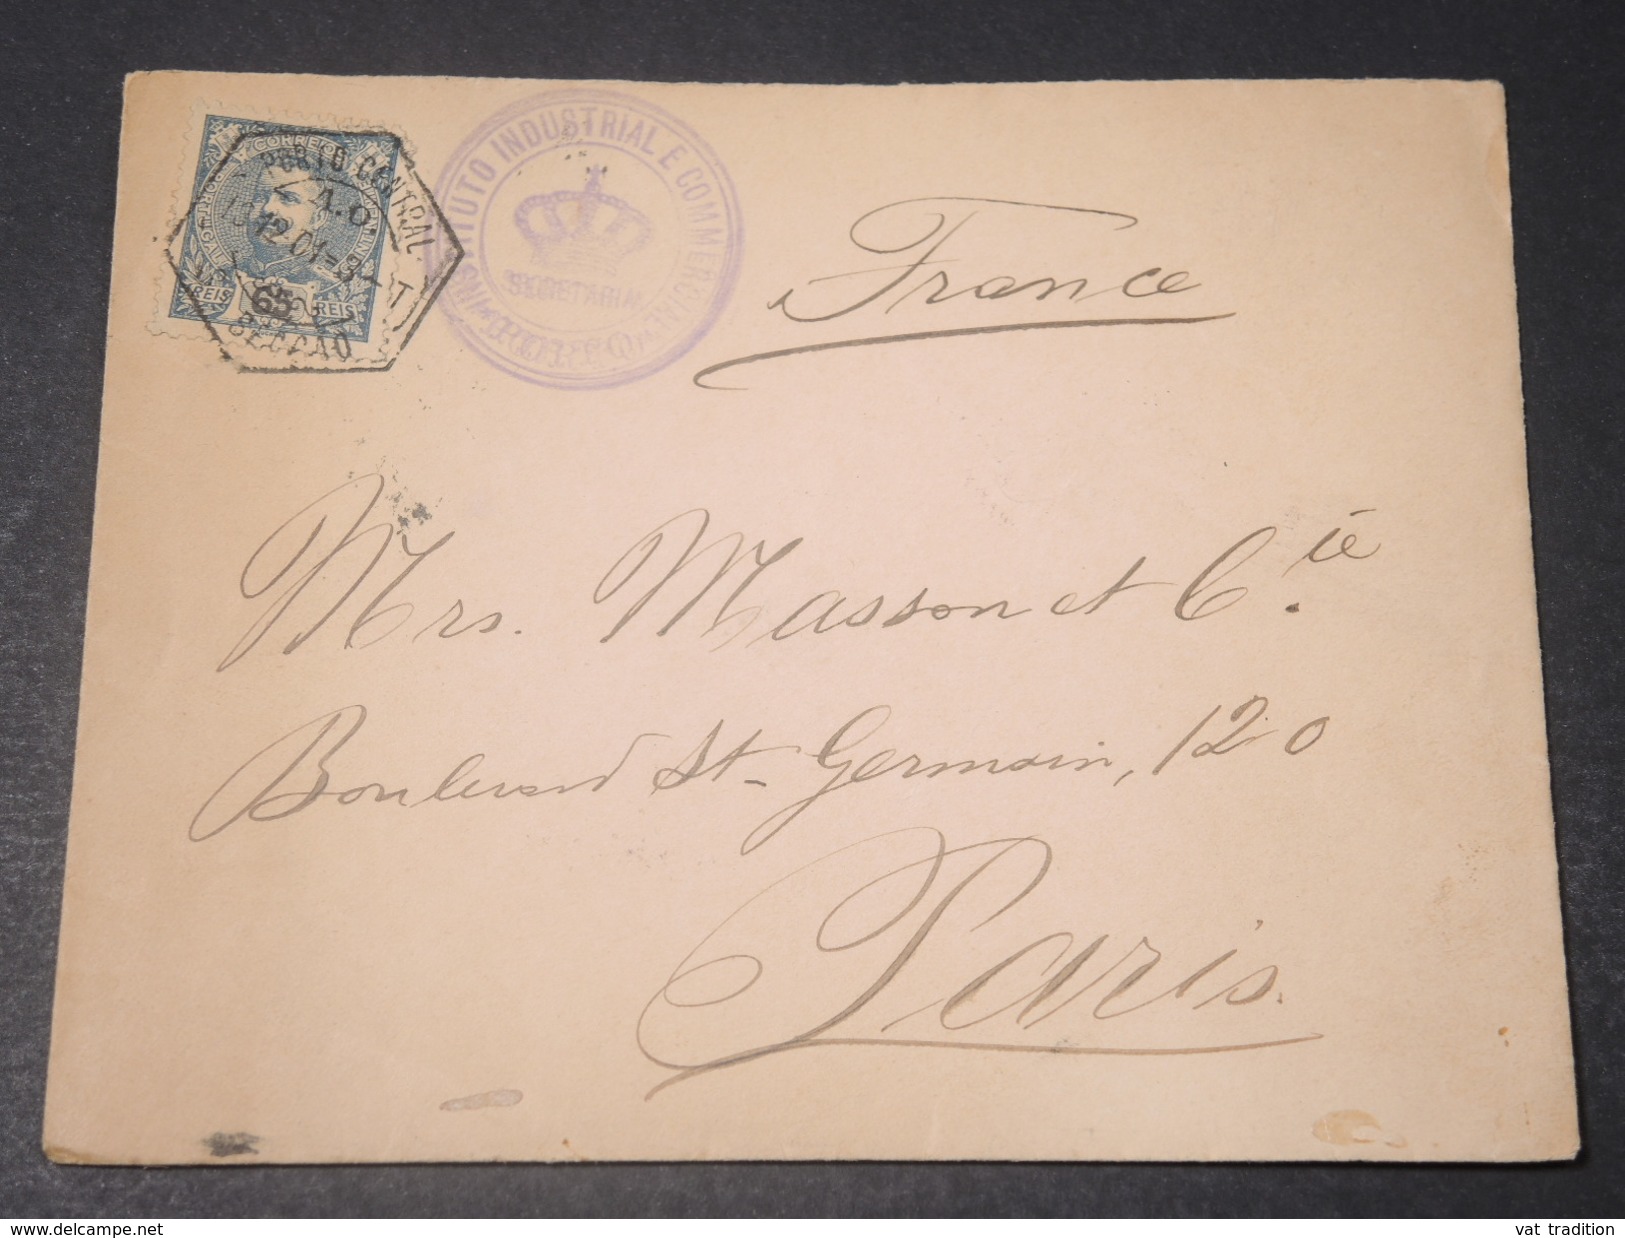 CORREIOS
PORTUGAL
CONTINENTE
REIS 65 REIS
PORTO CENTRAL
1.0
12-01
SECÇÃO
INSTITUTO INDUSTRIAL E COMMERCIAL
SECRETARIA
PORTO
France
Mrs. Masson et C.ie
Boulevard St-Germain, 120
Paris.
www.delcampe.net
vat_tradition